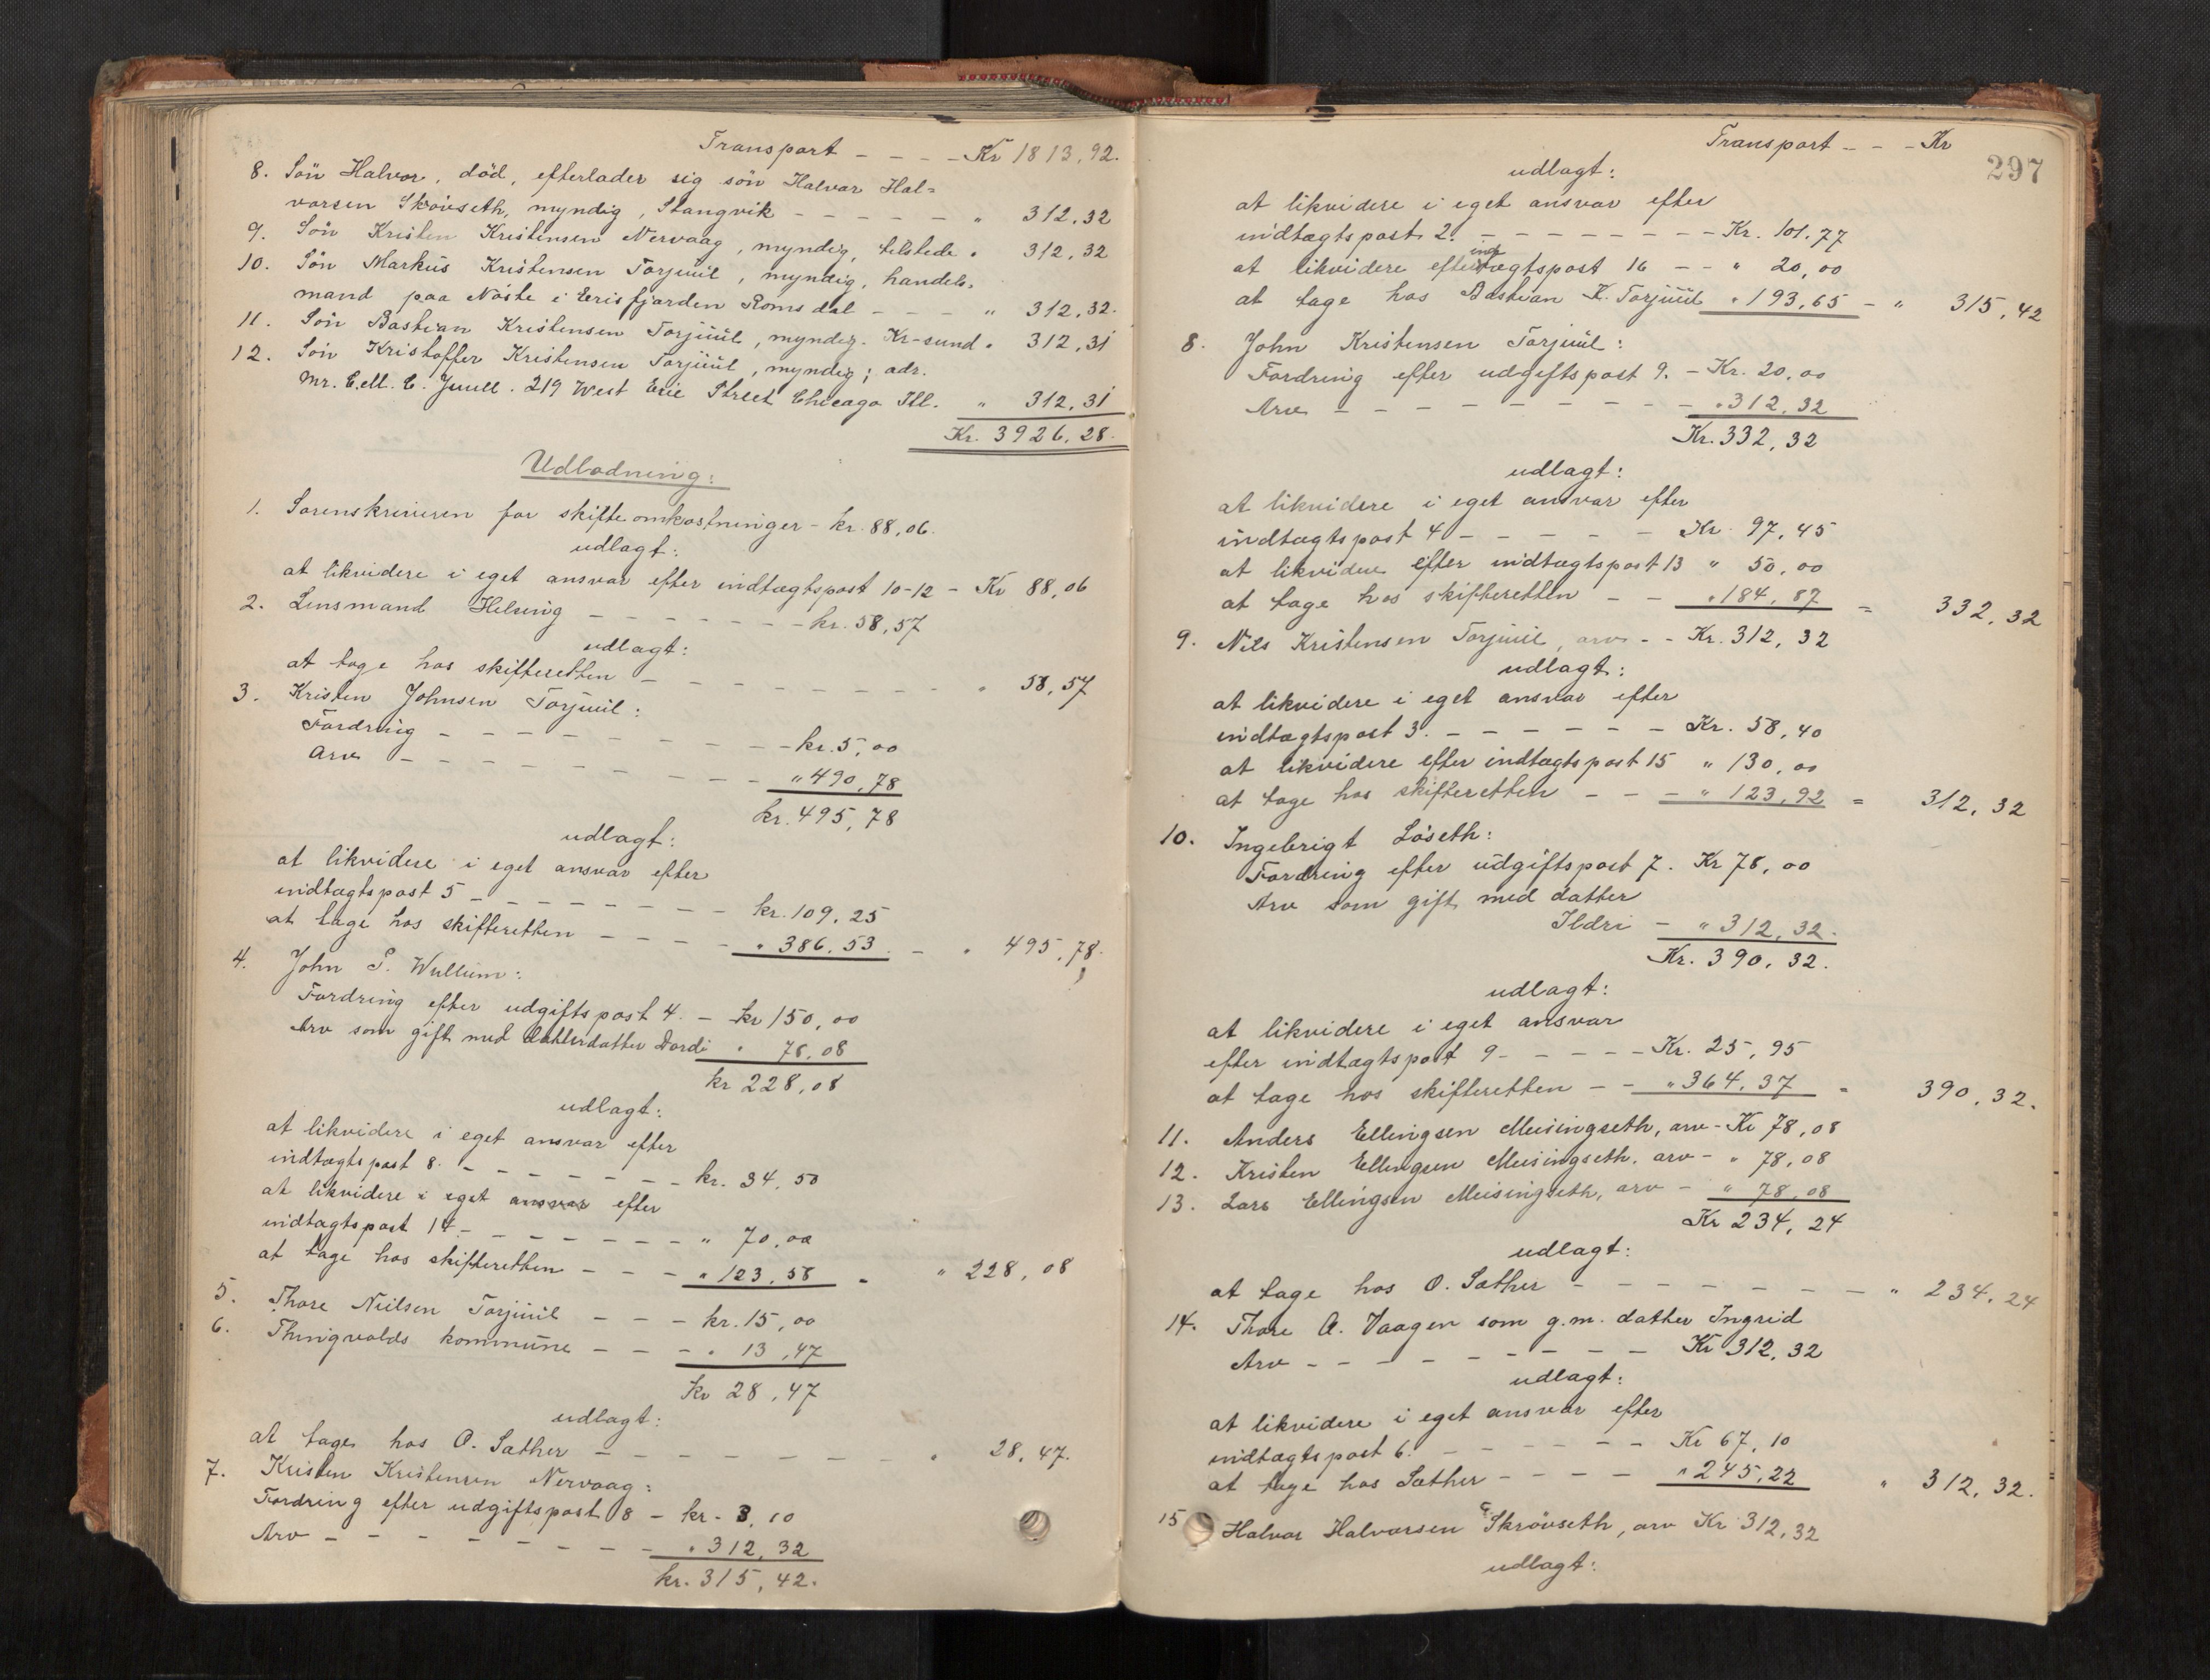 Transport - - - - Kr 1813,92.
8. Sön Halvor, död, efterlader sig sön Halvor Hal=
vorsen Skrövseth, myndig, Stangvik - - - - - " 312,32
9. Sön Kristen Kristensen Nervaag, myndig, tilstede " 312,32
10. Sön Markus Kristensen Torjüül, myndig, handels-
mand paa Nöste i Erisfjorden Romsdal - - - " 312,32.
11. Sön Bastian Kristensen Torjüül, myndig. Kr-sund " 312,31
12. Sön Kristoffer Kristensen Torjüül, myndig; adr.
Mr. C. M. C. Juull. 219 West Erie Street Chicago Ill. " 312,31
Kr. 3926,28.
Udlodning:
1. Sorenskriveren for skifteomkostninger - kr. 88,06.
udlagt:
at likvidere i eget ansvar efter indtægtspost 10-12 - Kr 88,06
2. Lensmand Helsing - - - - - - - kr. 58,57
udlagt:
at tage hos skifteretten - - - - - - - - - " 58,57
3. Kristen Johnsen Torjüül:
Fordring - - - - - - - - - - kr. 5,00
Arv - - - - - - - - - - " 490,78
kr. 495,78
udlagt:
at likvidere i eget ansvar efter
indtægtspost 5 - - - - - - - - kr. 109,25
at tage hos skifteretten - - - - " 386,53. - " 495,78.
4. John S. Wullum:
Fordring efter udgiftspost 4. - kr 150,00
Arv som gift med datterdatter Dordi " 78,08
kr 228,08
udlagt:
at likvidere i eget ansvar efter
indtægtspost 8. - - - - - - - kr. 34,50
at likvidere i eget ansvar efter
indtægtspost 14 - - - - - - - " 70,00
at tage hos skifteretten - - - " 123,58 - " 228,08
5. Thore Nielsen Torjüül - - - kr. 15,00
6. Thingvolds kommune - - - " 13,47
kr 28,47
udlagt:
at tage hos O. Sæther - - - - - - - - " 28,47.
7. Kristen Kristensen Nervaag:
Fordring efter udgiftspost 8 - kr - 3,10
Arv - - - - - - - - " 312,32
kr. 315,42.
Transport - - - Kr
297
udlagt:
at likvidere i eget ansvar efter
indtægtspost 2. - - - - - - - - Kr. 101.77
at likvidere efter indtægtspost 16 - - " 20,00
at tage hos Bastian K. Torjüül " 193,65 - " 315,42
8. John Kristensen Torjüül:
Fordring efter udgiftspost 9. - Kr. 20,00
Arv - - - - - - - - - " 312,32
Kr. 332,32
udlagt:
at likvidere i eget ansvar efter
indtægtspost 4 - - - - - Kr. 97,45
at likvidere efter indtægtspost 13 " 50,00
at tage hos skifteretten - - " 184,87 = 332,32
9. Nils Kristensen Torjüül, arv - - Kr. 312,32
udlagt:
at likvidere i eget ansvar efter
indtægtspost 3. - - - - - - Kr. 58,40
at likvidere efter indtægtspost 15 " 130,00
at tage hos skifteretten - - - " 123,92 = 312,32
10. Ingebrigt Löseth:
Fordring efter udgiftspost 7. Kr 78,00
Arv som gift med datter
Ildri - " 312,32.
Kr. 390,32.
udlagt:
at likvidere i eget ansvar
efter indtægtspost 9 - - - - - Kr. 25,95
at tage hos skifteretten - - " 364,37 = 390,32.
11. Anders Ellingsen Meisingseth, arv - Kr 78,08
12. Kristen Ellingsen Meisingseth, arv - " 78,08
13. Lars Ellingsen Meisingseth, arv - " 78,08
Kr 234,24
udlagt:
at tage hos O. Sæther - - - - - - - " 234,24
14. Thore A. Vaagen som g.m. datter Ingrid
Arv - - - - - - - - - Kr 312,32
udlagt:
at likvidere i eget ansvar efter
indtægtspost 6. - - - - - - Kr 67,10
at tage hos Sæther - - - - " 245,22 " 312,32.
15 Halvor Halvorsen Skrövseth, arv Kr 312,32
udlagt: